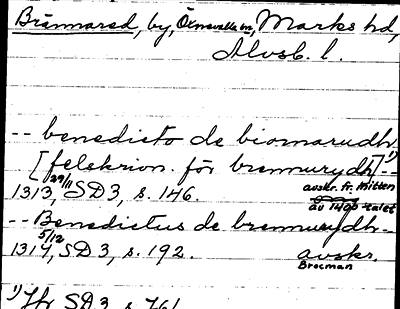 Brännared, by, Öxnevalla sn, Marks hd,
Älvsb. l.
-- benedicto de biornarudh 1)
[felskrivn. för brennurydh] --
1313 29/11, SD 3, s. 146. avskr. fr. mitten
av 1400-talet
-- Benedictus de brennurydh --
1314 5/12, SD 3, s. 192. avskr.
Brocman
1) Jfr SD 3 s. 761